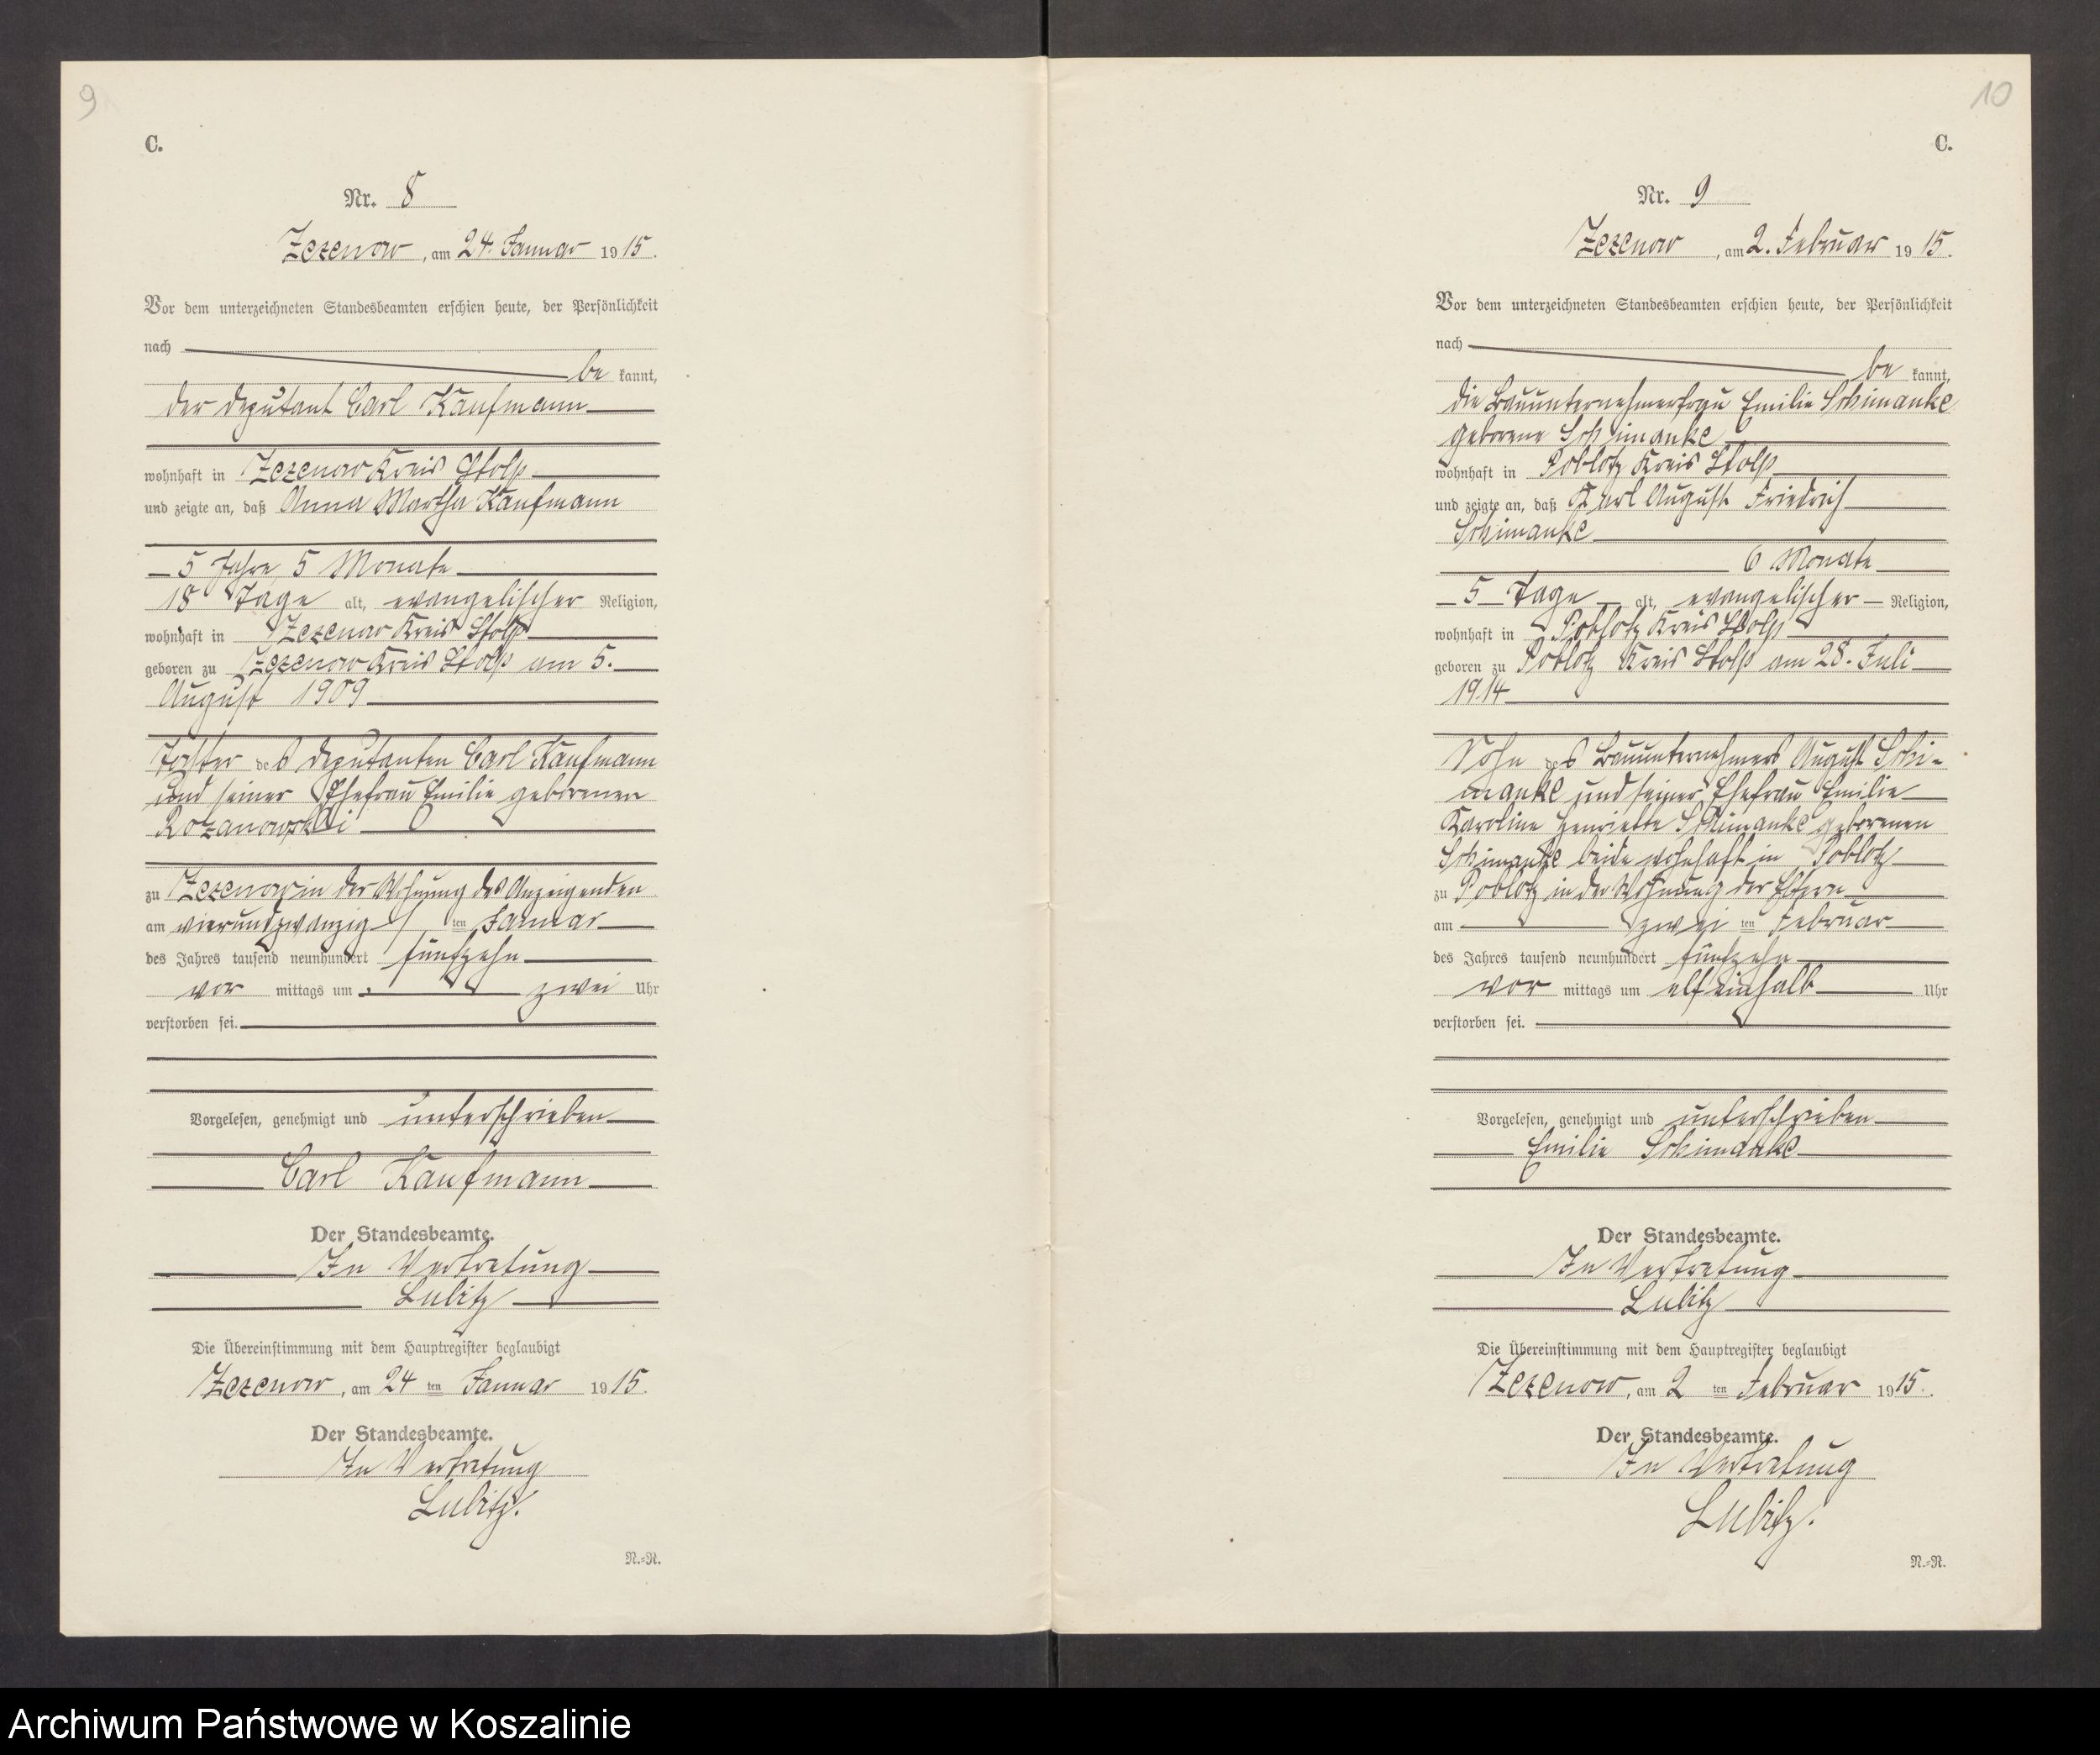 9
C.
Nr. 8
Zezenow, am 24. Januar 1915.
Vor dem unterzeichneten Standesbeamten erschien heute, der Persönlichkeit
nach
be kannt,
der Deputant Carl Kaufmann
wohnhaft in Zezenow Kreis Stolp
und zeigte an, daß Anna Martha Kaufmann
5 Jahre, 5 Monate
18 Tage alt, evangelischer Religion,
wohnhaft in Zezenow Kreis Stolp
geboren zu Zezenow Kreis Stolp am 5.
August 1909
Tochter des Deputanten Carl Kaufmann
und seiner Ehefrau Emilie geborenen
Rozanowski
zu Zezenow in der Wohnung des Anzeigenden
am vierundzwanzig ten Januar
des Jahres tausend neunhundert fünfzehn
vor mittags um zwei Uhr
verstorben sei.
Vorgelesen, genehmigt und unterschrieben
Carl Kaufmann
Der Standesbeamte.
In Vertretung
Lubitz
Die Übereinstimmung mit dem Hauptregister beglaubigt
Zezenow, am 24 ten Januar 1915.
Der Standesbeamte.
In Vertretung
Lubitz.
N.=N.
10
C.
Nr. 9
Zezenow, am 2. Februar 1915.
Vor dem unterzeichneten Standesbeamten erschien heute, der Persönlichkeit
nach
be kannt,
die Bauunternehmerfrau Emilie Schimanke
geborene Schimanke
wohnhaft in Poblotz Kreis Stolp
und zeigte an, daß Karl August Friedrich
Schimanke
6 Monate
5 Tage alt, evangelischer Religion,
wohnhaft in Poblotz Kreis Stolp
geboren zu Poblotz Kreis Stolp am 28. Juli
1914
Sohn des Bauunternehmers August Schi-
manke und seiner Ehefrau Emilie
Karoline Henriette Schimanke geborenen
Schimanke beide wohnhaft in Poblotz
zu Poblotz in der Wohnung der Eltern
am zwei ten Februar
des Jahres tausend neunhundert fünfzehn
vor mittags um elf einhalb Uhr
verstorben sei.
Vorgelesen, genehmigt und unterschrieben
Emilie Schimanke
Der Standesbeamte.
In Vertretung
Lubitz
Die Übereinstimmung mit dem Hauptregister beglaubigt
Zezenow, am 2 ten Februar 1915.
Der Standesbeamte.
In Vertretung
Lubitz.
N.=N.
Archiwum Państwowe w Koszalinie